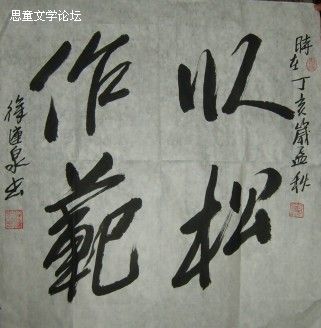 思童文学论坛
時在丁亥歲孟秋
以松
作範
徐連泉书